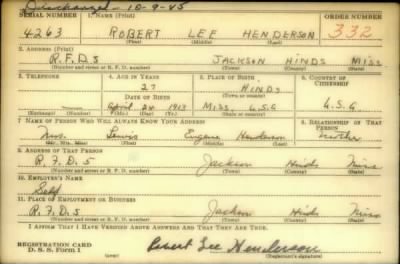 Discharged - 10-9-45
SERIAL NUMBER 1. NAME (Print) ORDER NUMBER
4263 ROBERT LEE HENDERSON 332
(First) (Middle) (Last)
2. ADDRESS (Print)
R.F.D.5 JACKSON HINDS MISS
(Number and street or R. F. D. number) (Town) (County) (State)
3. TELEPHONE 4. AGE IN YEARS 5. PLACE OF BIRTH 6. COUNTRY OF CITIZENSHIP
27 HINDS
DATE OF BIRTH (Town or county)
April 24 1913 MISS. U.S.A. U.S.A.
(Exchange) (Number) (Mo.) (Day) (Yr.) (State or country)
7. NAME OF PERSON WHO WILL ALWAYS KNOW YOUR ADDRESS 8. RELATIONSHIP OF THAT PERSON
Mrs. Lewis Eugene Henderson mother
(Mr., Mrs., Miss) (First) (Middle) (Last)
9. ADDRESS OF THAT PERSON
R.F.D.5 Jackson Hinds Miss
(Number and street or R. F. D. number) (Town) (County) (State)
10. EMPLOYER'S NAME
Self
11. PLACE OF EMPLOYMENT OR BUSINESS
R.F.D.5 Jackson Hinds Miss
(Number and street or R. F. D. number) (Town) (County) (State)
I AFFIRM THAT I HAVE VERIFIED ABOVE ANSWERS AND THAT THEY ARE TRUE.
REGISTRATION CARD
D. S. S. Form 1
Robert Lee Henderson
(Registrant's signature)